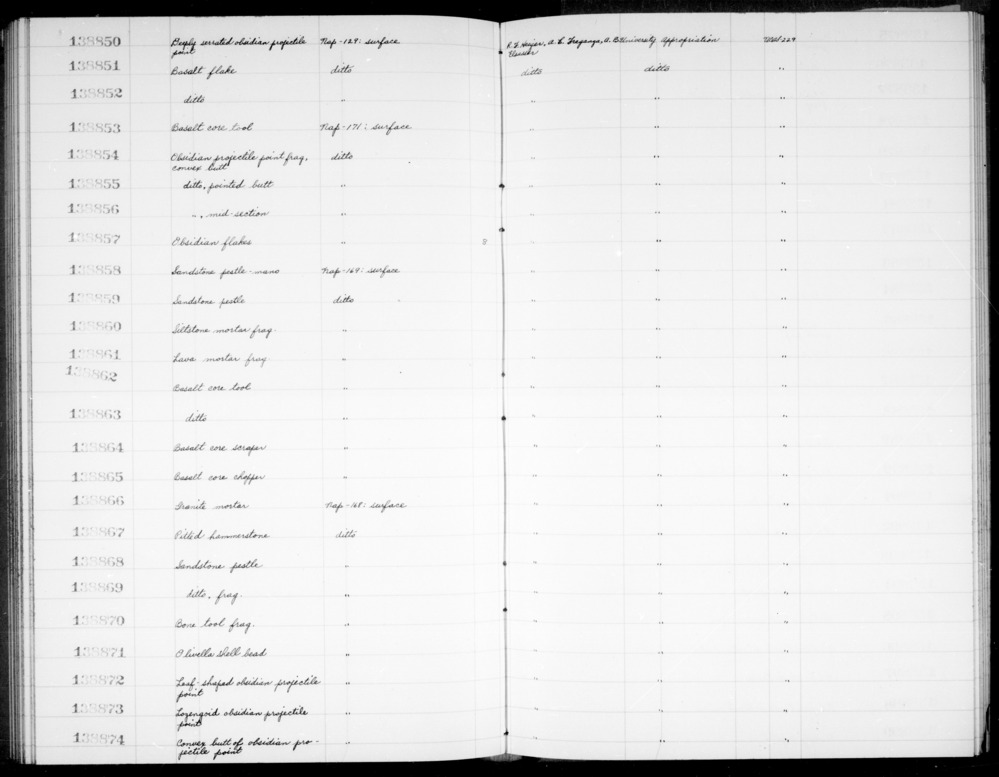 138850 Deeply serrated obsidian projectile Nap-129: surface R. F. Heizer, A. E. Treganza, A. B. University Appropriation
point Elsasser
138851 Basalt flake ditto ditto ditto "
138852 ditto " " " "
138853 Basalt core tool Nap-171: surface " " "
138854 Obsidian projectile point frag, ditto " " "
convex butt
138855 ditto, pointed butt " " " "
138856 ", mid-section " " " "
138857 Obsidian flakes " 8 " " "
138858 Sandstone pestle-mano Nap-169: surface " " "
138859 Sandstone pestle ditto " " "
138860 Siltstone mortar frag. " " " "
138861 Lava mortar frag " " " "
138862 Basalt core tool " " " "
138863 ditto " " " "
138864 Basalt core scraper " " " "
138865 Basalt core chopper " " " "
138866 Granite mortar Nap-168: surface " " "
138867 Pitted hammerstone ditto " " "
138868 Sandstone pestle " " " "
138869 ditto, frag. " " " "
138870 Bone tool frag. " " " "
138871 Olivella shell bead " " " "
138872 Leaf-shaped obsidian projectile " " " "
point
138873 Lozengoid obsidian projectile " " " "
point
138874 Convex butt of obsidian pro- " " " "
jectile point